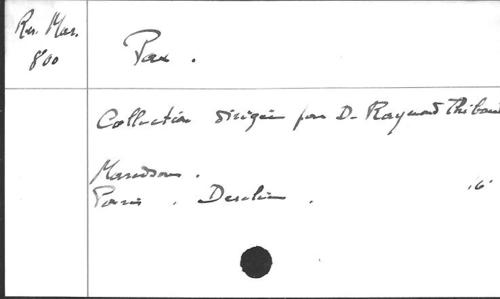 Rev. Mar.
800
Pax .
Collection dirigée par D. Raymond Thibaut
Maredsous .
Paris . Desclée . 16°